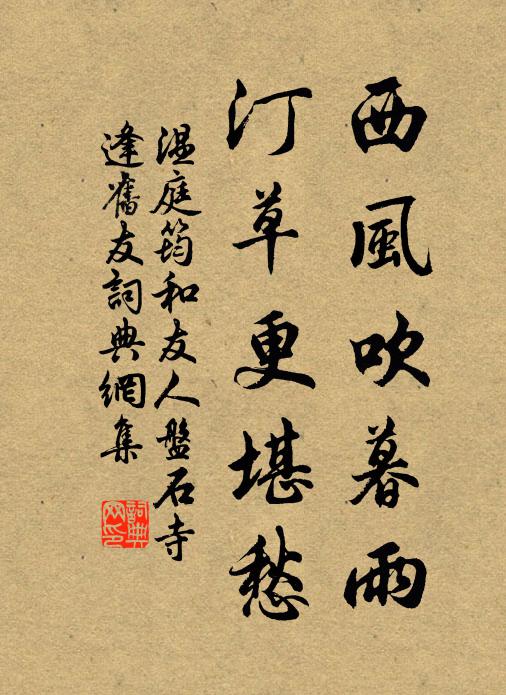 西風吹暮雨
汀草更堪愁
溫庭筠和友人盤石寺
逢舊友詞典網集
詞典
网印